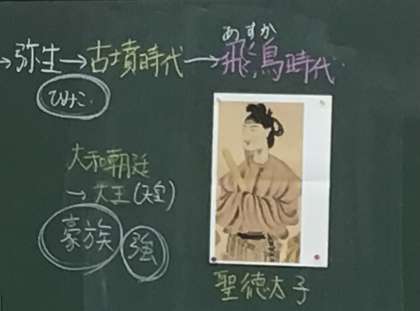 あすか
→弥生→古墳時代→飛鳥時代
ひみこ
大和朝廷
→大王(天皇)
豪族 強
聖徳太子